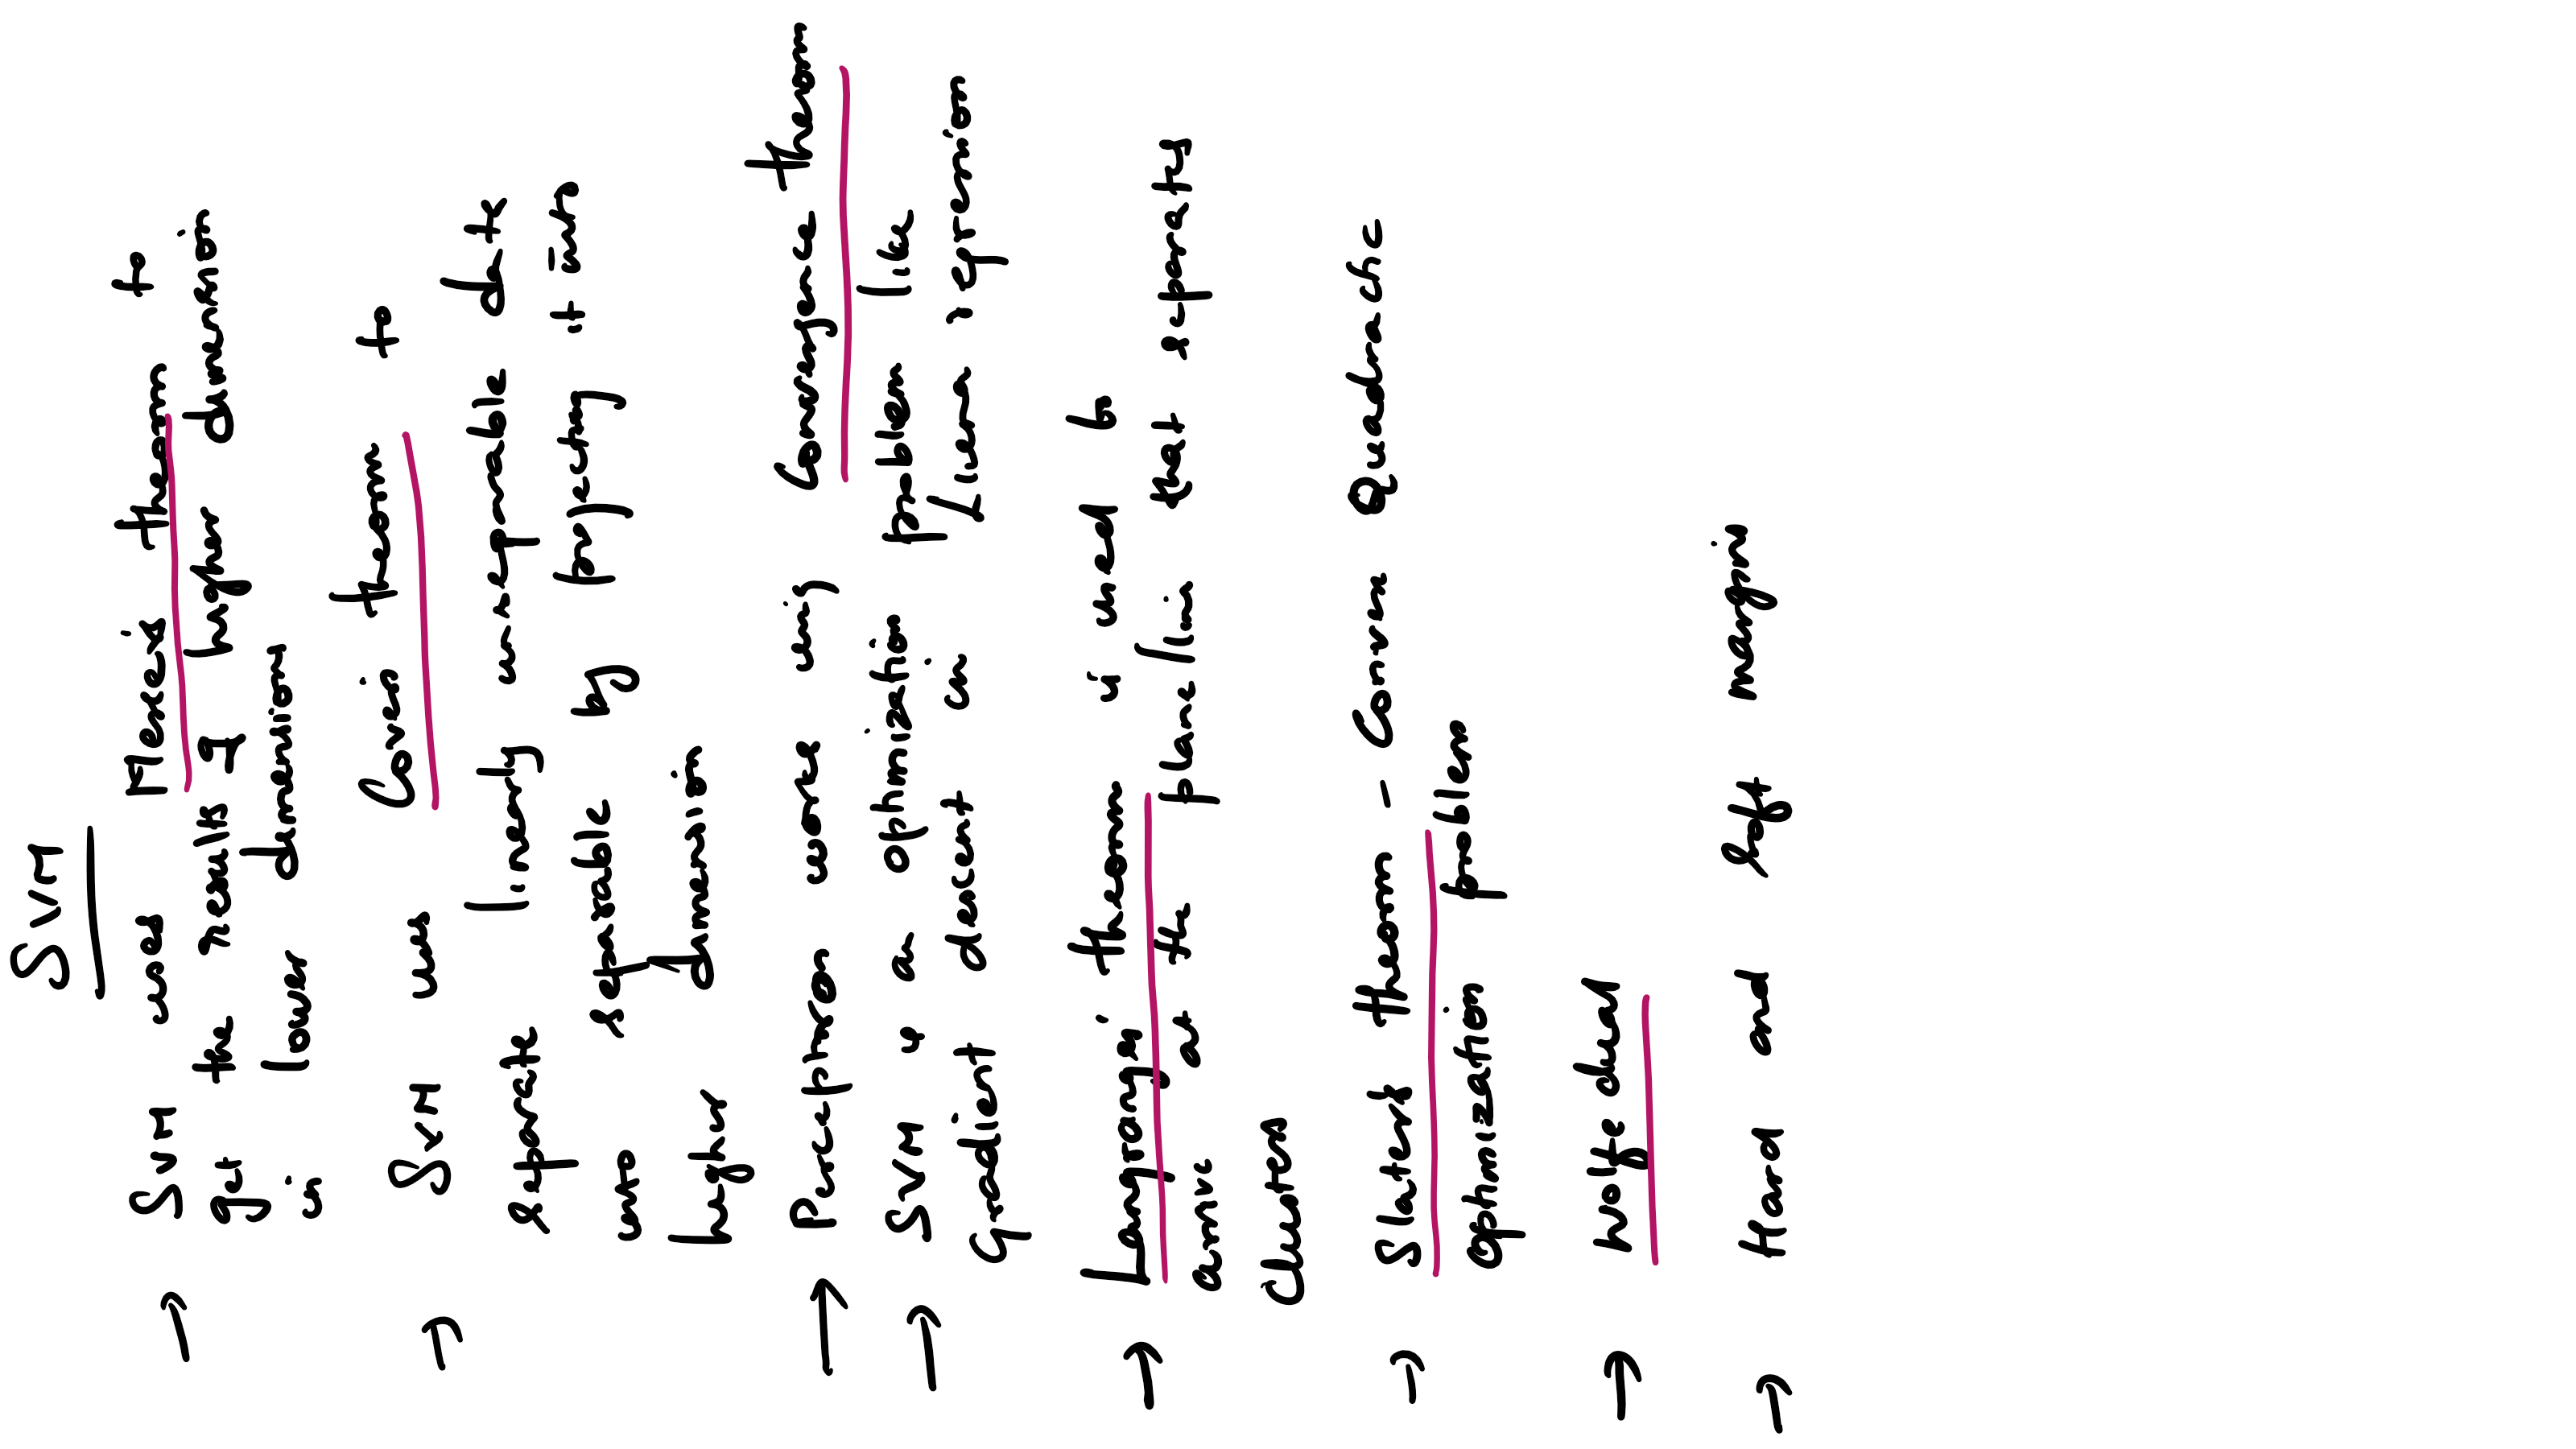 SVM
→ SVM uses Mercer's theorem to
get the results of higher dimension
in lower dimension
→ SVM uses Cover's theorem to
separate linearly unseparable data
into separable by projecting it into
higher dimension
→ Perceptron works using Convergence theorem
→ SVM is an optimization problem like
Gradient descent in Linear regression
→ Langrange's theorem is used to
arrive at the plane/line that separates
clusters
→ Slater's theorem - Convex Quadratic
Optimization problem
→ Wolfe dual
→ Hard and soft margins